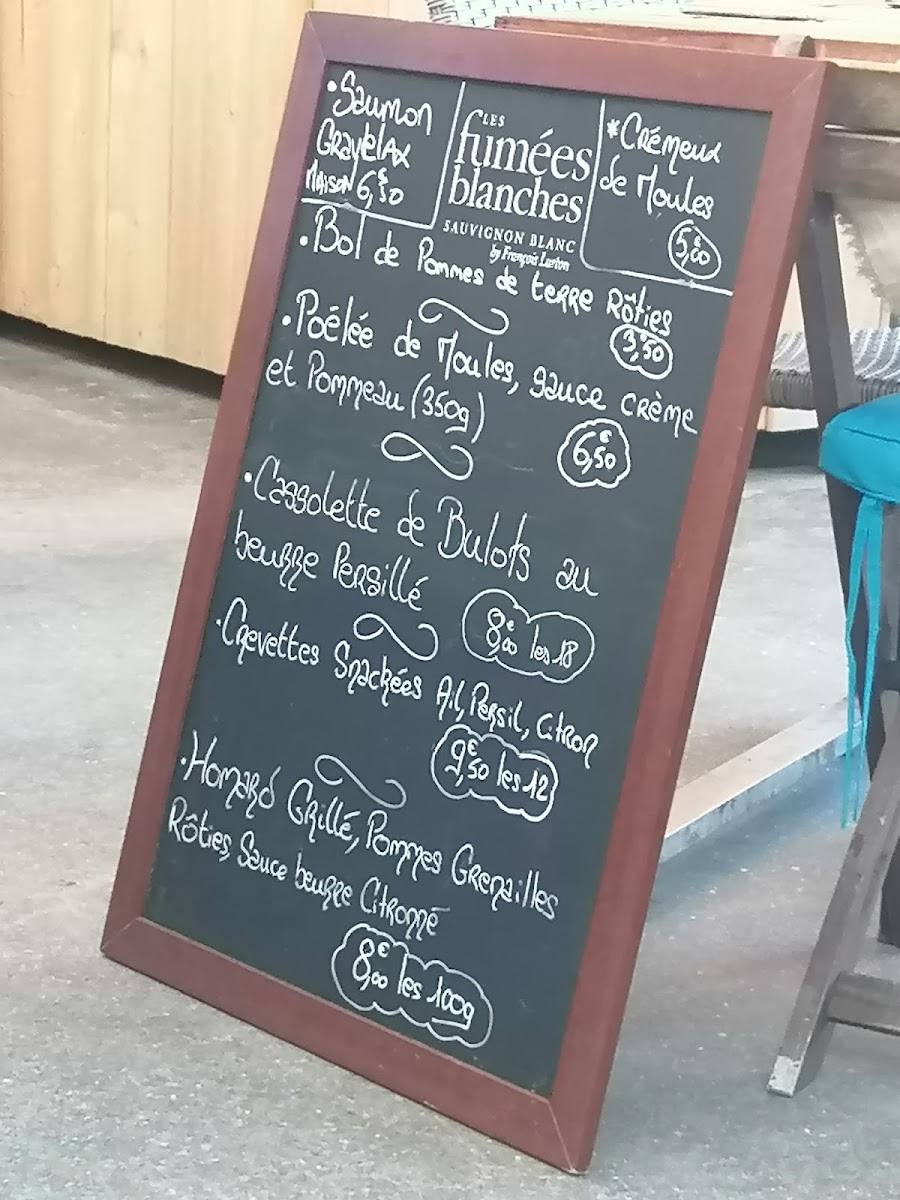 • Saumon
Gravelax
Maison 6,€50
LES
fumées
blanches
SAUVIGNON BLANC
by François Lurton
* Crémeux
de Moules
5,€00
• Bol de Pommes de terre Rôties
3,€50
• Poêlée de Moules, sauce crème
et Pommeau (350g)
6,€50
• Cassolette de Bulots au
beurre Persillé
8,€00 les 18
• Crevettes Snackées Ail, Persil, Citron
9,€50 les 12
• Homard Grillé, Pommes Grenailles
Rôties, Sauce beurre Citronné
8,€00 les 100g